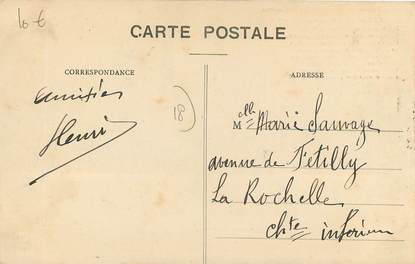 10 €
CARTE POSTALE
CORRESPONDANCE
amitiés
Henri
18
ADRESSE
Melle Marie Sauvage
avenue de Fétilly
La Rochelle
Chte inférieure